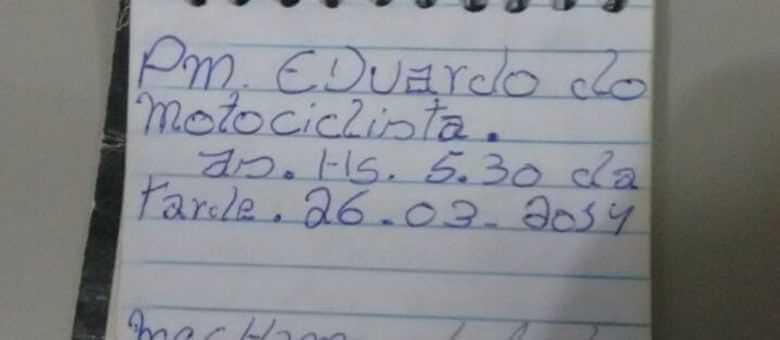 Pm. EDuardo do
motociclista.
as. Hs. 5.30 da
tarde. 26.03-2014